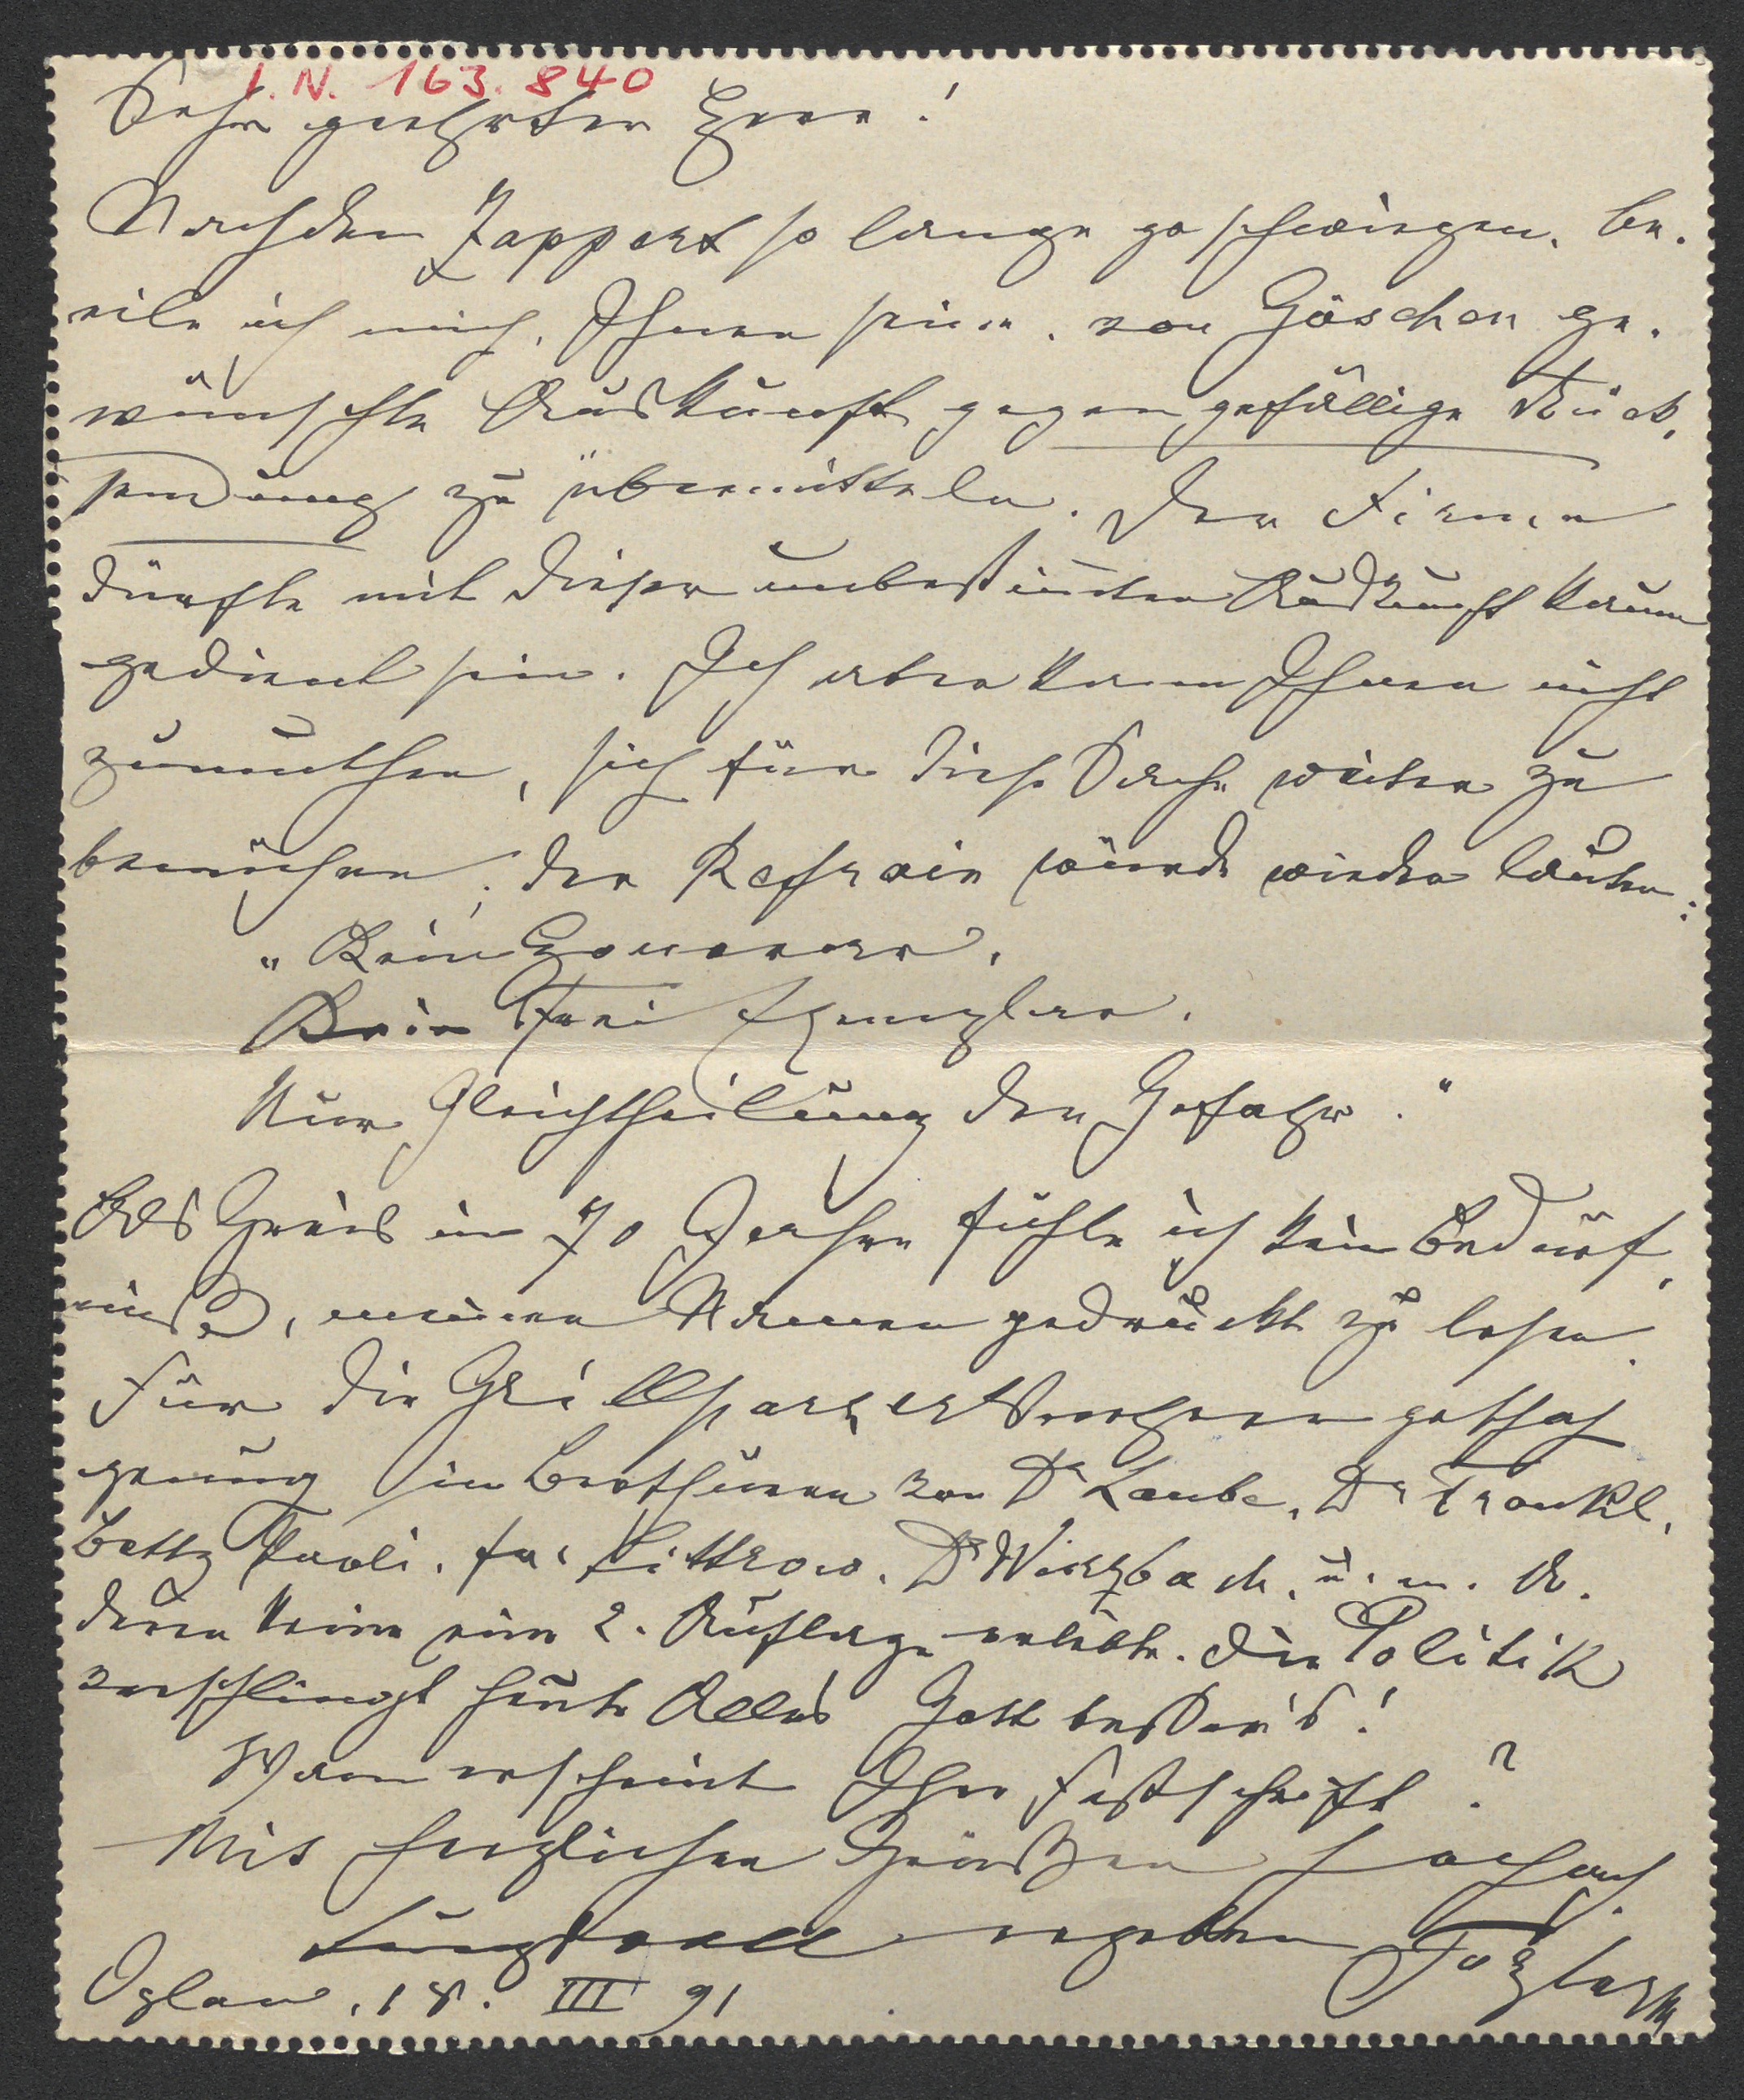 I. N. 163.840
Sehr geehrter Herr!
Nachdem Zappert so lange geschwiegen, be-
eile ich mich, Ihnen seine, von Göschen ge-
wünschte Auskunft gegen gefällige Rück-
sendung zu übermitteln. Der Firma
dürfte mit dieser unbestim̄ten Auskunft kaum
gedient sein. Ich aber kann Ihnen nicht
zumuthen, sich für diese Sache weiter zu
bemühen; der Refrain würde wieder lauten:
„Kein Honorar,
Kein Frei Exemplar,
Nur Gleichtheilung der Gefahr."
Als Greis im 70 Jahre fühle ich kein Bedürf-
niß, meinen Namen gedruckt zu lesen.
Für die Grillparzer Verehrer geschah
genug in Brochuren von Dr Laube, Dr Frankl,
Betty Paoli, Littrow, Dr Wurzbach, u. m. A.
deren keine eine 2. Auflage erlebte. Die Politik
verschlingt heute Alles Gott beßer's!
Wann erscheint Ihre Festschrift?
Mit herzlichen Grüßen hochach-
tungsvoll ergeben
18. III 91